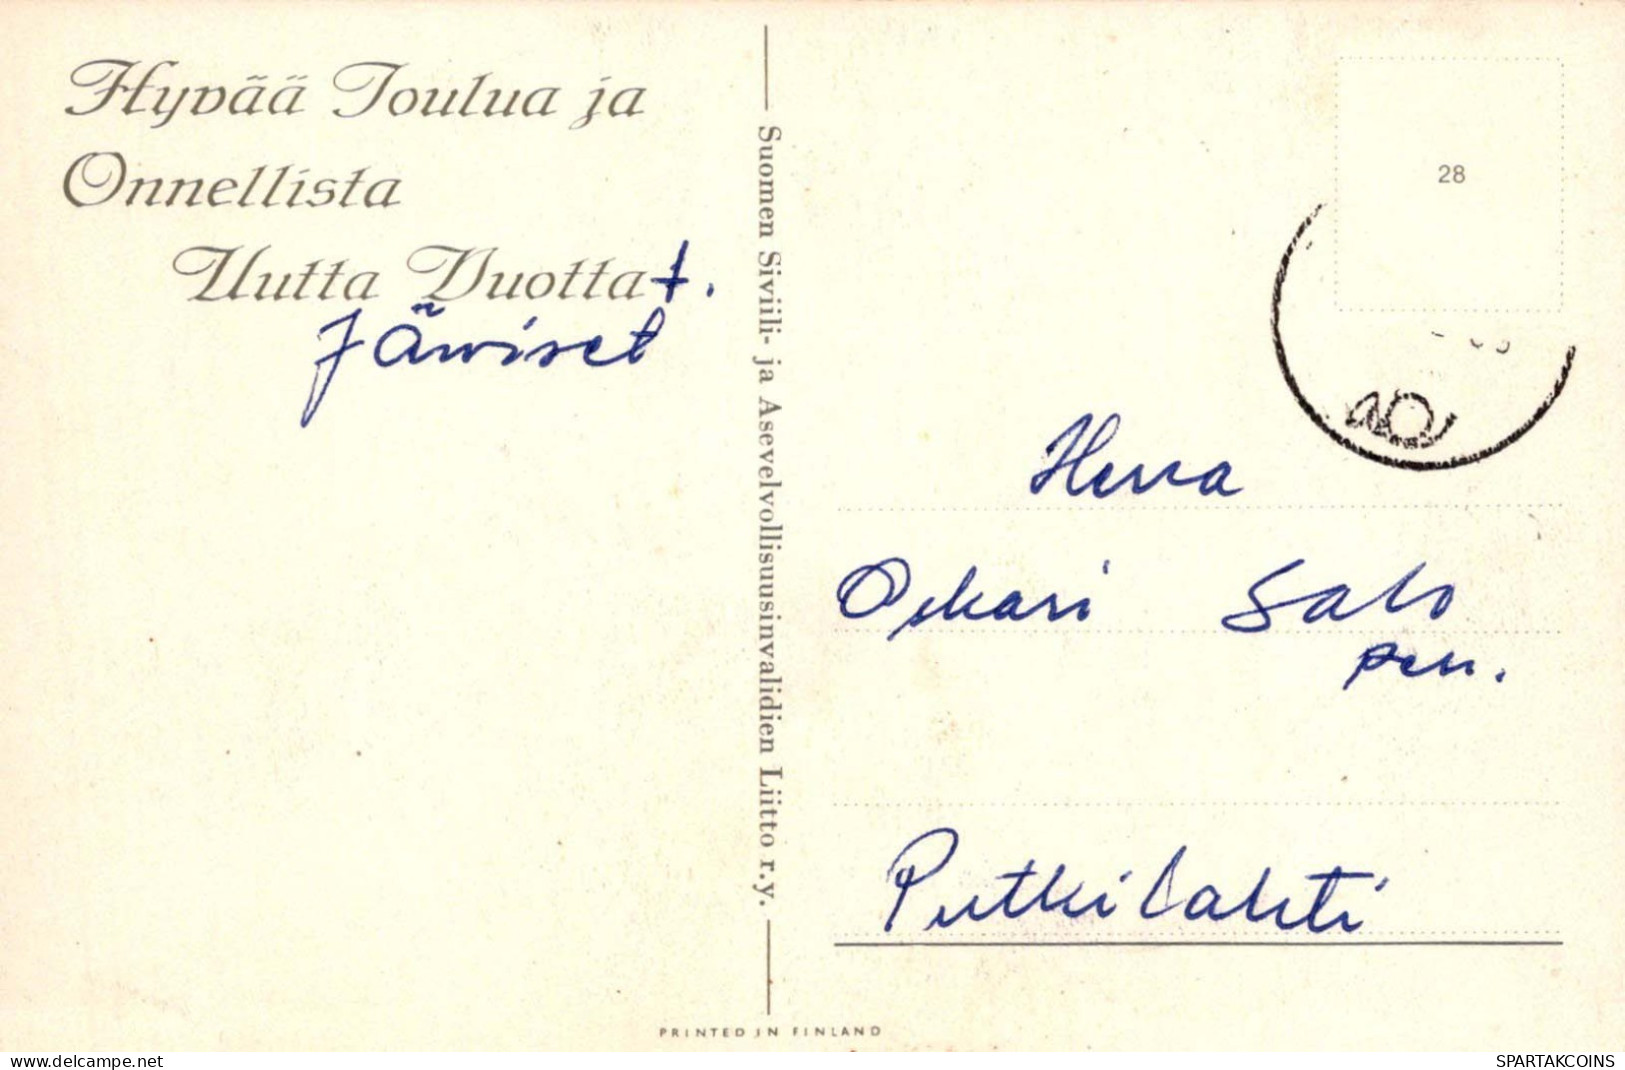 Hyvää Joulua ja
Onnellista
Uutta Vuotta t.
Järviset
Suomen Siviili- ja Asevelvollisuusinvalidien Liitto r.y.
28
Herra
Oskari Salo
per.
Putkilahti
PRINTED IN FINLAND
www.delcampe.net
SPARTAKCOINS